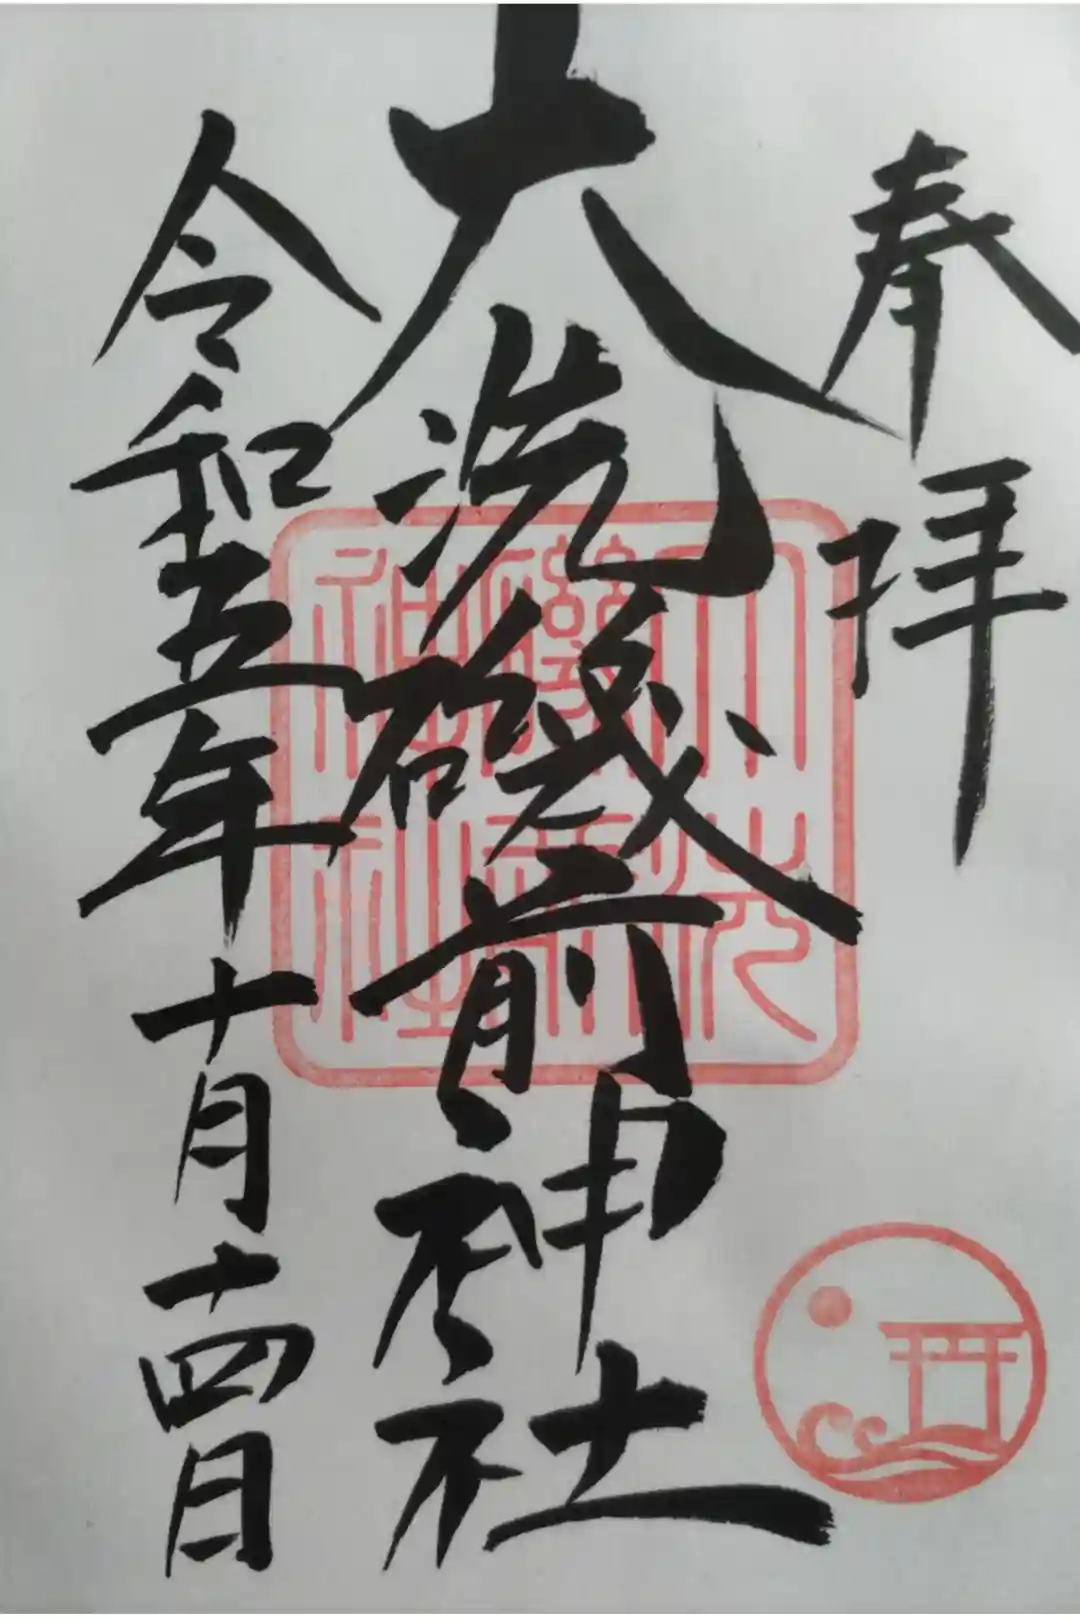 奉拝
大洗磯前神社
令和五年十月十四日
大洗
磯前
神社